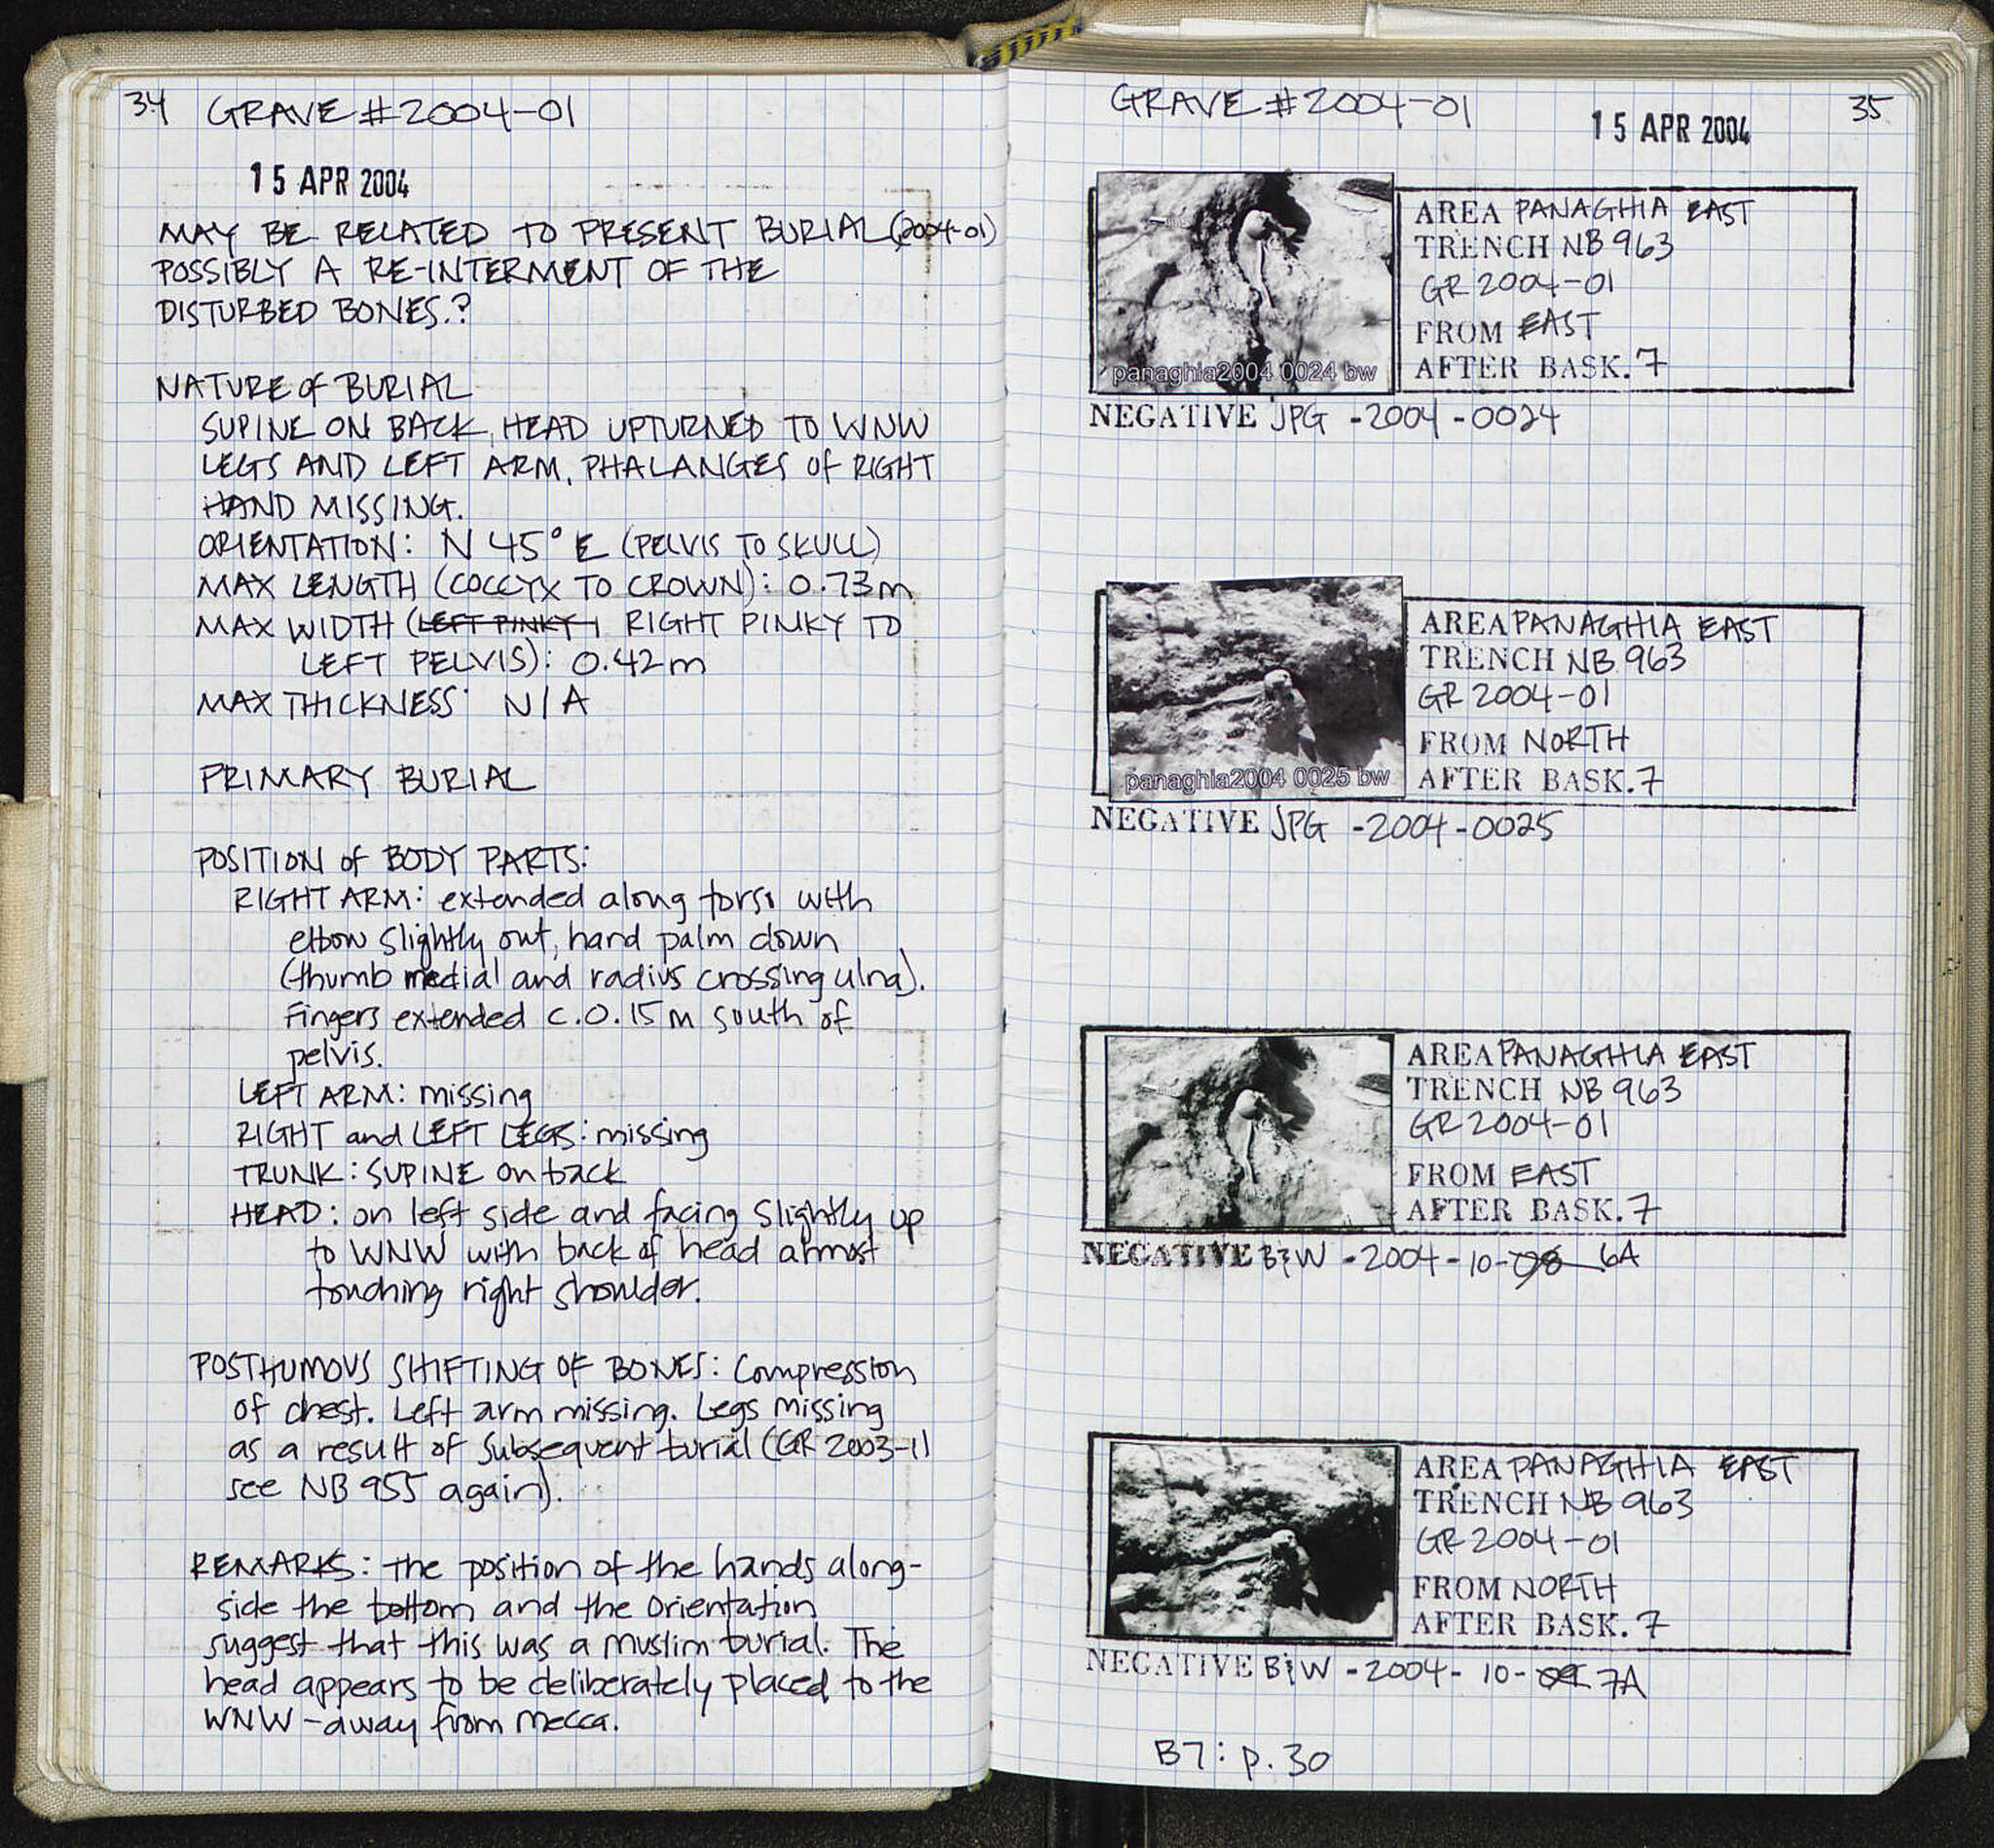 34 GRAVE #2004-01
15 APR 2004
MAY BE RELATED TO PRESENT BURIAL (2004-01)
POSSIBLY A RE-INTERMENT OF THE
DISTURBED BONES.?
NATURE of BURIAL
SUPINE ON BACK, HEAD UPTURNED TO WNW
LEGS AND LEFT ARM, PHALANGES of RIGHT
HAND MISSING.
ORIENTATION: N 45° E (PELVIS TO SKULL)
MAX LENGTH (COCCYX TO CROWN): 0.73m
MAX WIDTH (LEFT PINKY RIGHT PINKY TO
LEFT PELVIS): 0.42m
MAX THICKNESS: N/A
PRIMARY BURIAL
POSITION of BODY PARTS:
RIGHT ARM: extended along torso with
elbow slightly out, hand palm down
(thumb medial and radius crossing ulna).
Fingers extended c.0.15m south of
pelvis.
LEFT ARM: missing
RIGHT and LEFT LEGS: missing
TRUNK: SUPINE on back
HEAD: on left side and facing slightly up
to WNW with back of head almost
touching right shoulder.
POSTHUMOUS SHIFTING OF BONES: Compression
of chest. Left arm missing. Legs missing
as a result of subsequent burial (GR 2003-11
see NB 955 again).
REMARKS: The position of the hands along-
side the bottom and the orientation
suggest that this was a muslim burial. The
head appears to be deliberately placed to the
WNW - away from Mecca.
GRAVE #2004-01
15 APR 2004
35
AREA PANAGHIA EAST
TRENCH NB 963
GR 2004-01
FROM EAST
AFTER BASK. 7
panaghia2004 0024 bw
NEGATIVE JPG -2004-0024
AREA PANAGHIA EAST
TRENCH NB 963
GR 2004-01
FROM NORTH
AFTER BASK. 7
panaghia2004 0025 bw
NEGATIVE JPG -2004-0025
AREA PANAGHIA EAST
TRENCH NB 963
GR 2004-01
FROM EAST
AFTER BASK. 7
NEGATIVE B&W -2004-10-08 6A
AREA PANAGHIA EAST
TRENCH NB 963
GR 2004-01
FROM NORTH
AFTER BASK. 7
NEGATIVE B&W -2004-10- 7A
B7: p. 30